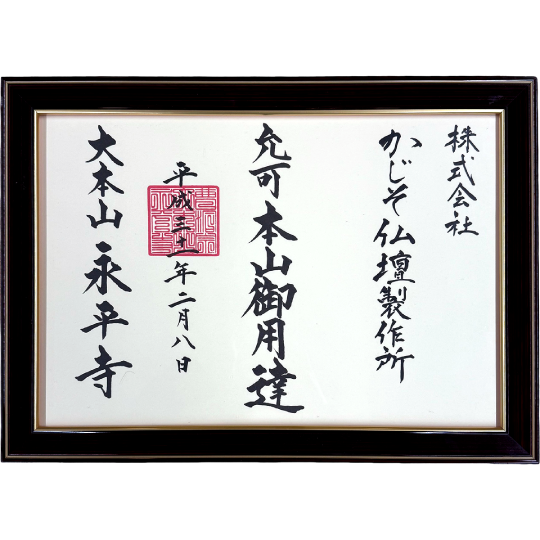 株式会社
かじそ仏壇製作所
允可本山御用達
平成三十一年二月八日
大本山永平寺